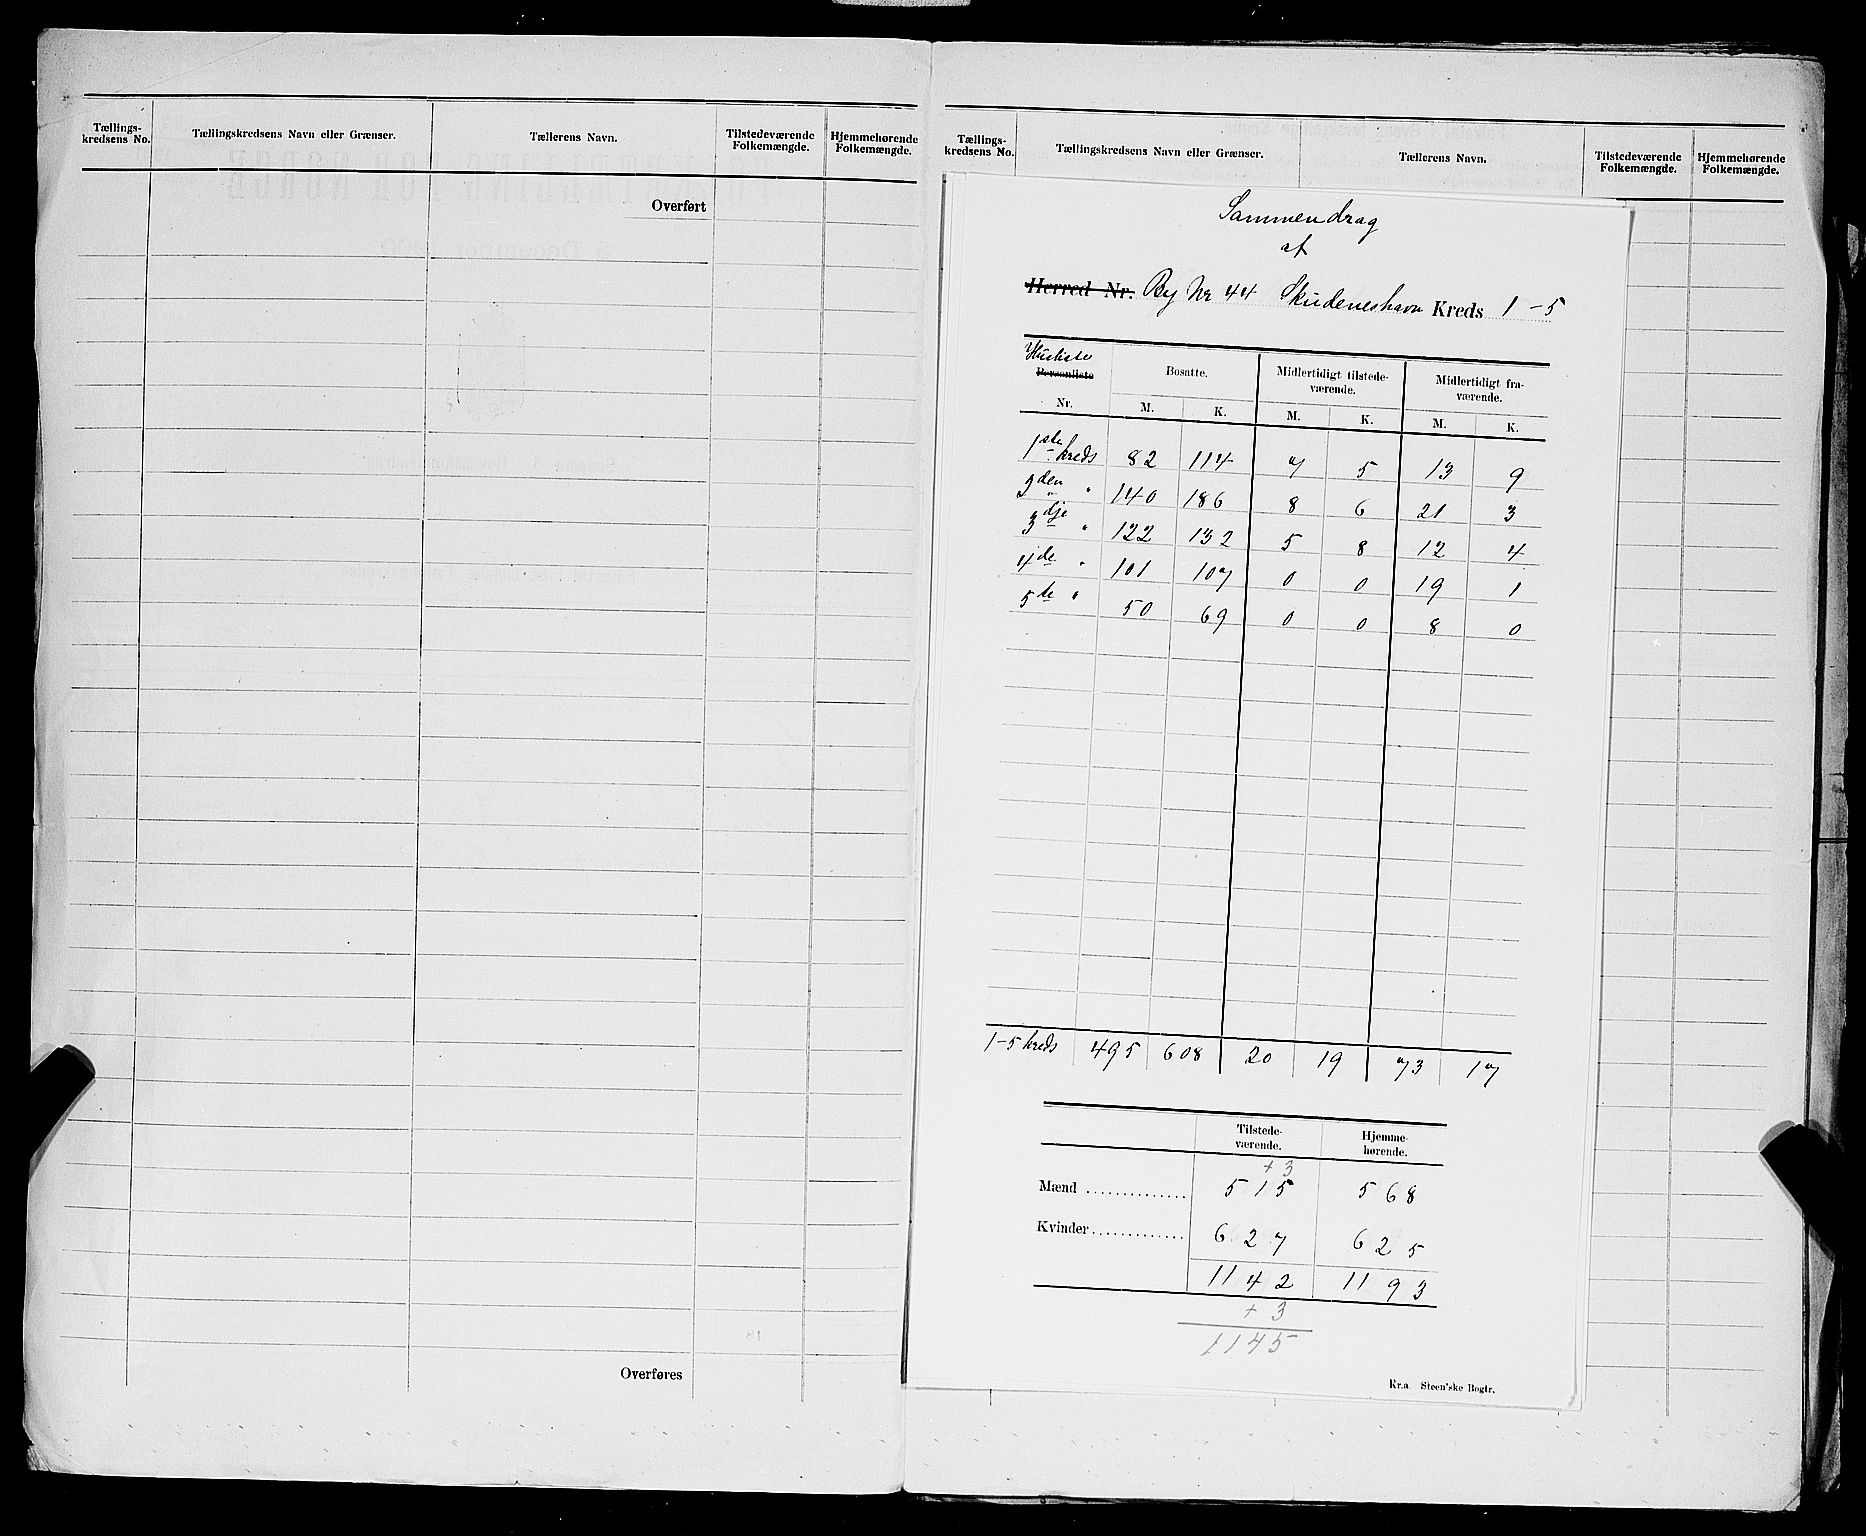 Tællings-
kredsens No.
Tællingskredsens Navn eller Grænser.
Tællerens Navn.
Tilstedeværende
Folkemængde.
Hjemmehørende
Folkemængde.
Overført
Overføres
Tællings-
kredsens No.
Tællingskredsens Navn eller Grænser.
Tællerens Navn.
Tilstedeværende
Folkemængde.
Hjemmehørende
Folkemængde.
Sammendrag
af
Herred Nr. By Nr 44 Skudeneshavn Kreds 1-5
Husliste
Personliste
Nr.
Bosatte.
Midlertidigt tilstede-
værende.
Midlertidigt fra-
værende.
M. K. M. K. M. K.
1ste kreds 82 114 7 5 13 9
2den " 140 186 8 6 21 3
3dje " 122 132 5 8 12 4
4de " 101 107 0 0 19 1
5te " 50 69 0 0 8 0
1-5 kreds 495 608 20 19 73 17
Tilstede-
værende.
Hjemme-
hørende.
+ 3
Mænd .............. 515 568
Kvinder ............. 627 625
1142 1193
+ 3
1145
Kr.a. Steen'ske Bogtr.